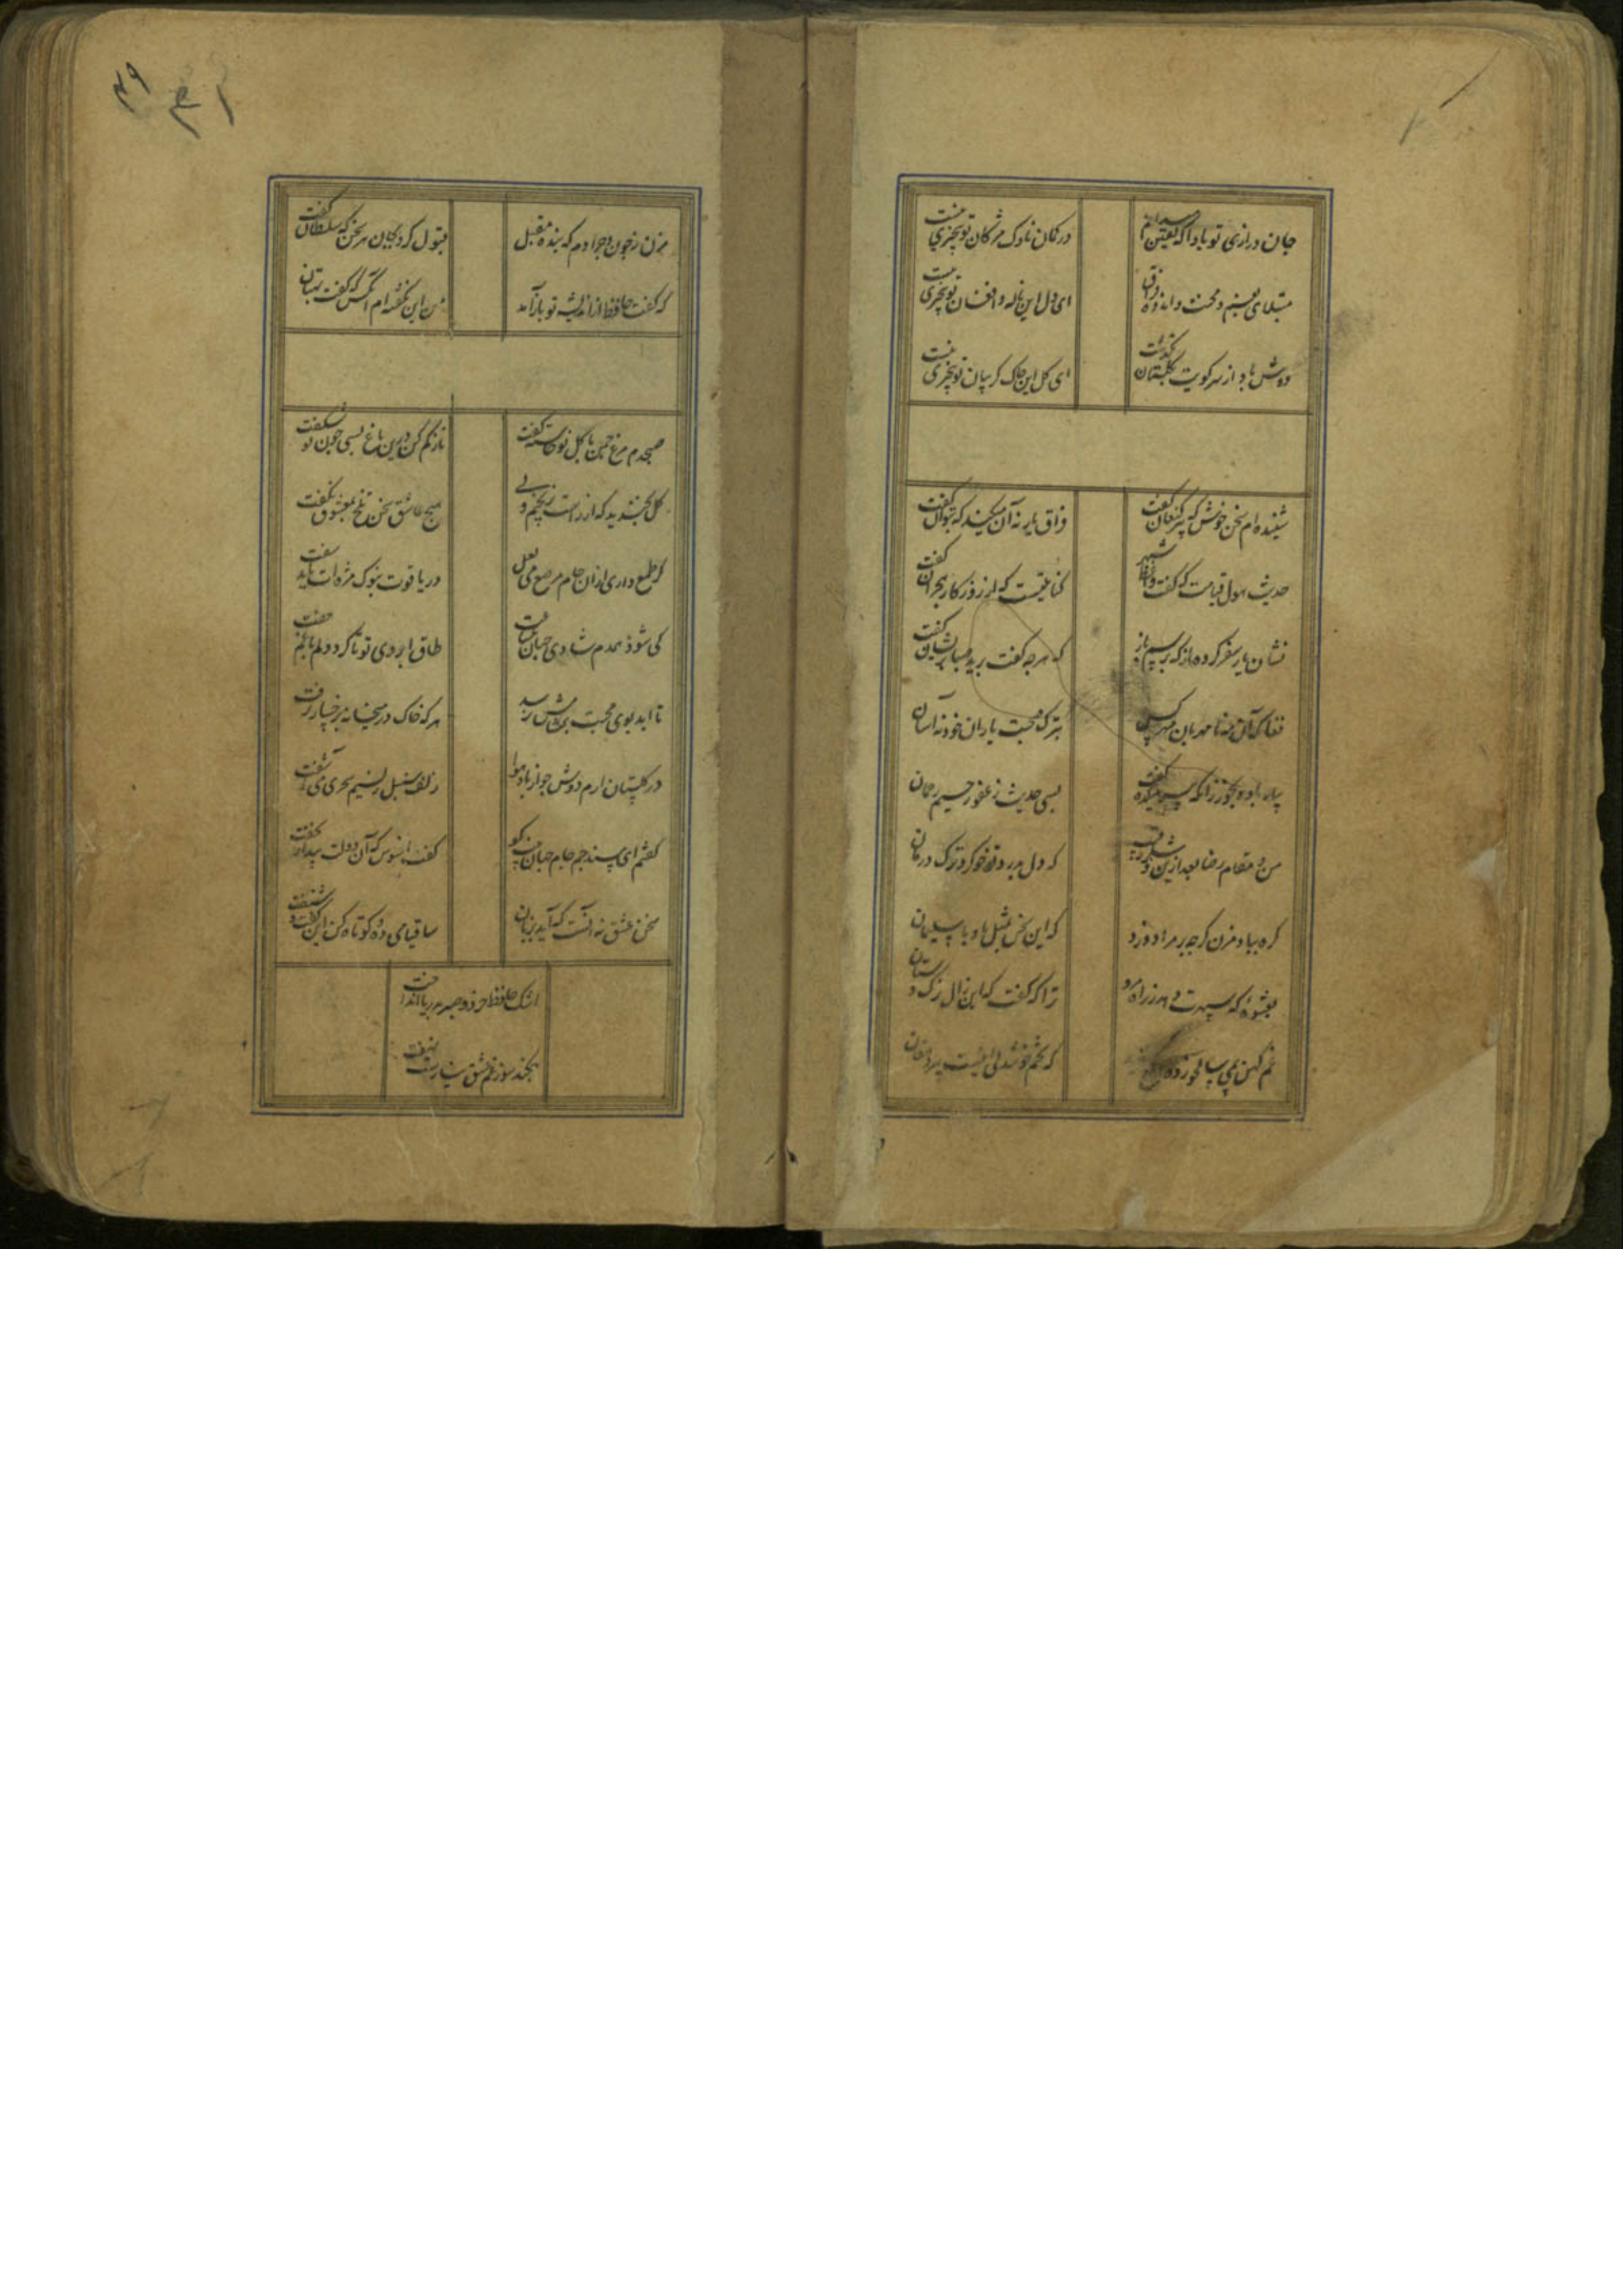 جان درازی تو بادا که یقین میدانم در کمان ناوک مژکان تو بیچیزی نیست
مبتلای بغم و محنت و اندوه فراق ای دل این ناله و افغان تو بیچیزی نیست
دوش باد از سر کویت بگلستان بگذشت ای کل این چاک کریبان تو بیچیزی نیست
شنیده ام سخن خوش که پیر کنعان گفت فراق یار نه آن میکند که بتوان گفت
حدیث هول قیامت که گفت واعظ شهر کنایتیست که از روزکار هجران گفت
نشان یار سفر کرده از که پرسم باز که هرچه گفت برید صبا پریشان گفت
فغان که آن مه نا مهربان مهر کسل بترک صحبت یاران خود نه آسان
بیار باده بخور زانکه پیر میکده گفت بسی حدیث ز غفور رحیم رحمان
من و مقام رضا بعد ازین و شکر رقیب که دل بدرد تو خو کرد و ترک درمان
کره بباد مزن کرچه بر مراد وزد که این سخن بمثل باد با سلیمان
بعشوۀ که سپهرت دهد ز راه مرو ترا که گفت که این زال ترک دستان
غم کهن بمی سالخورده دفع کنید که تخم خوشدلی اینست پیر دهقان
۴۹ ۳۱
مزن ز چون و چرا دم که بندۀ مقبل قبول کرد بجان هر سخن که سلطان گفت
که گفت حافظ از اندیشه تو باز آمد من این نگفته ام آنکس که گفت بهتان
صبحدم مرغ چمن با کل نوخاسته گفت ناز کم کن درین باغ بسی چون تو شکفت
کل بخندید که از راست نرنجیم ولی هیچ عاشق سخن تلخ بمعشوق نگفت
کر طمع داری از آن جام مرصع می لعل در یاقوت بنوک مژه ات باید سفت
کی شود همدم شادی جهان طاق ابروی تو تا کرد دلم با غم جفت
تا ابد بوی محبت بمشامش نرسد هر که خاک در میخانه برخسار نرفت
در کلستان ارم دوش چو از باد هوا زلف سنبل ز نسیم سحری می آشفت
گفتم ای مسند جم جام جهان بینت کو گفت افسوس که آن دولت بیدار بخفت
سخن عشق نه آنست که آید بزبان ساقیا می ده و کوتاه کن این گفت و شنفت
اشک حافظ خرد و صبر بدریا انداخت
چکند سوز غم عشق نیارست نهفت